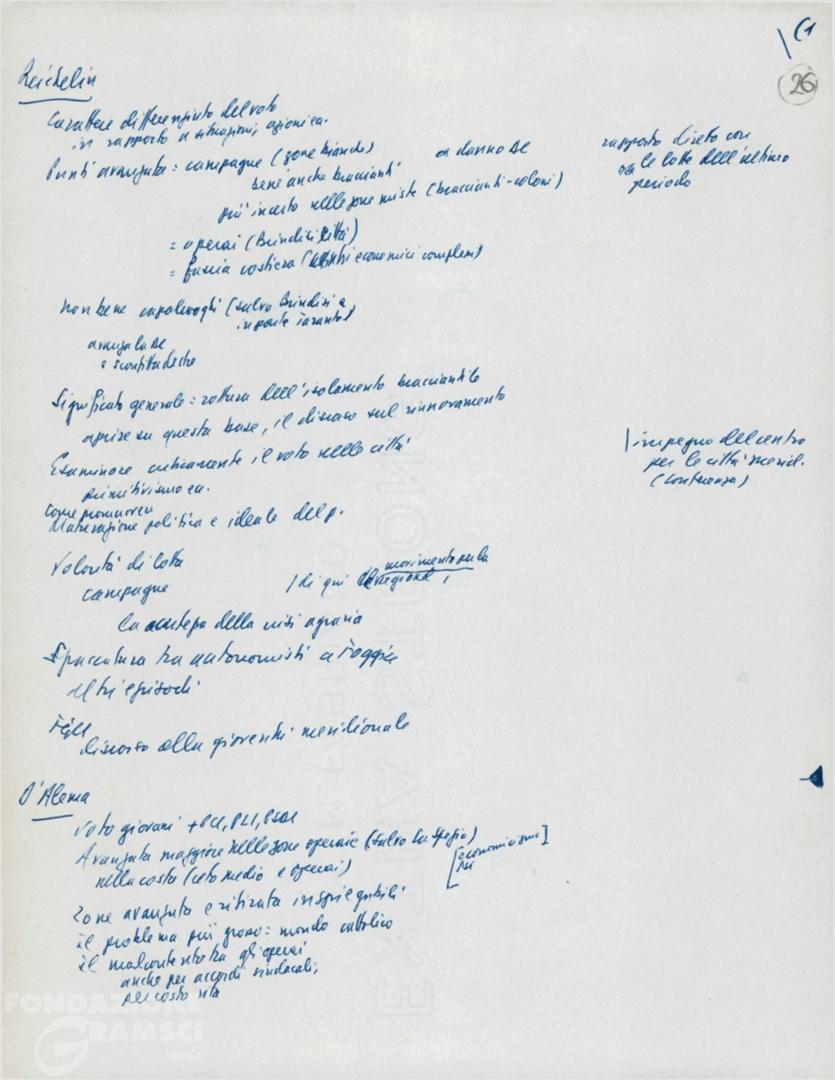 26
Reichlin
Carattere differenziato del voto
in rapporto a situazioni, azione ica.
Punti avanzata: campagne (zone bianche) a danno DC
rapporto diretto con
le lotte dell'ultimo
periodo
bene anche braccianti
più incerto nelle zone miste (braccianti-coloni)
= operai (Brindisi città)
= fascia costiera (economici complessi)
Non bene capoluoghi (salvo Brindisi e
in parte Taranto)
avanza la DC
e sconfitta destre
Significato generale: rottura dell'isolamento bracciantile
aprire su questa base, il discorso sul rinnovamento
Esaminare criticamente il voto nelle città
primitivismo ec.
impegno del centro
per le città merid.
(conferenza)
come promuovere
Maturazione politica e ideale del p.
Volontà di lotta
campagne
/ di qui movimento per la regione /
la acutezza della crisi agraria
Spaccatura tra autonomisti a Foggia
altri episodi
FGCI
discorso alla gioventù meridionale
D'Alema
Voto giovani + PCI, PLI, PSDI
Avanzata maggiore nelle zone operaie (salvo La Spezia)
nella costa (ceto medio e operai)
[economicismo]
Zone avanzata e ritirata inspiegabili
il problema più grosso: mondo cattolico
il malcontento tra gli operai
anche per accordi sindacali,
per costo vita
FONDAZIONE
GRAMSCI